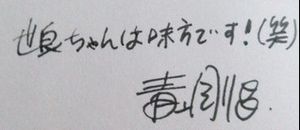 世良ちゃんは味方です!(笑)
青山剛昌.